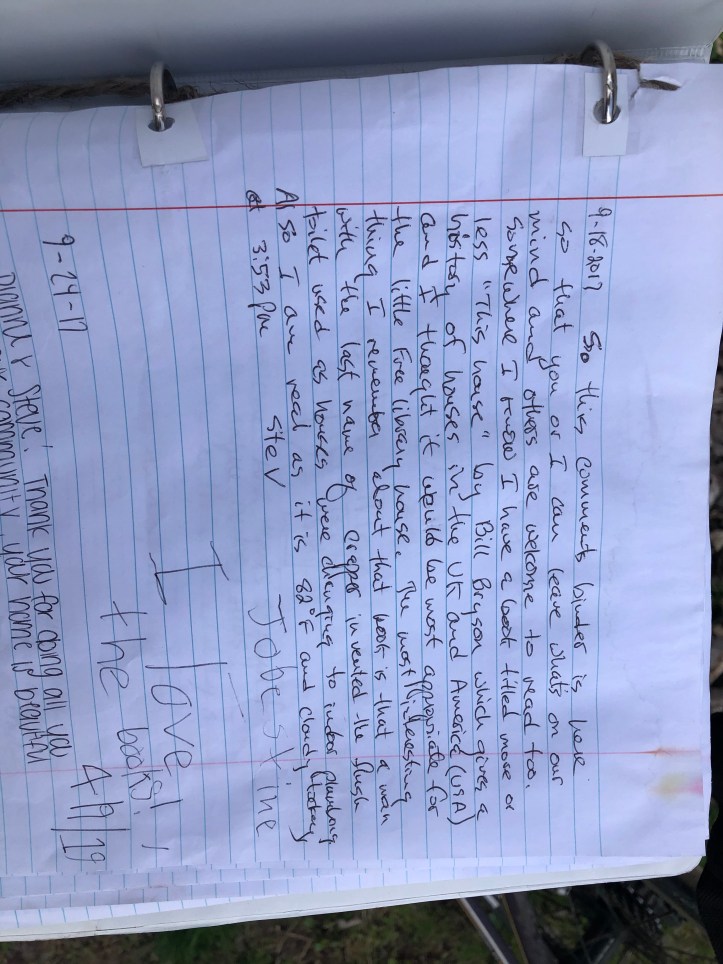 9-18-2017 So this comments binder is here
so that you or I can leave what's on our
mind and others are welcome to read too.
Somewhere I know I have a book titled more or
less "This house" by Bill Bryson which gives a
history of houses in the UK and America (USA)
and I thought it would be most appropriate for
the little Free library house. The most interesting
thing I remember about that book is that a man
with the last name of crapper invented the flush
toilet used as houses were changing to indoor plumbing
Also I am real as it is 82°F and cloudy today
at 3:53 pm SteV
I love
the books!
4/9/19
9-24-17
& Steve! Thank you for doing all you
community your name is beautiful